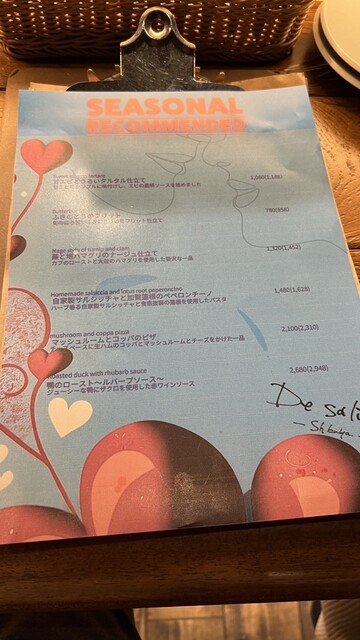 SEASONAL
RECOMMENDED
Sweet shrimp tartare
甘エビとうるいタルタル仕立て
1,080(1,188)
ふきのとうのフリット
780(858)
蕪と地ハマグリのナージュ仕立て
カブのローストと大粒のハマグリを使用した贅沢な一品
1,320(1,452)
Homemade salsiccia and lotus root peperoncino
自家製サルシッチャと加賀蓮根のペペロンチーノ
ハーブ香る自家製サルシッチャと食感豊かな蓮根を使用したパスタ
1,480(1,628)
mushroom and coppa pizza
マッシュルームとコッパのピザ
チーズベースに生ハムのコッパとマッシュルームとチーズをかけた一品
2,100(2,310)
Roasted duck with rhubarb sauce
鴨のロースト～ルバーブソース～
ジューシーな鴨にザクロを使用した赤ワインソース
2,680(2,948)
De sali
- Shibuya